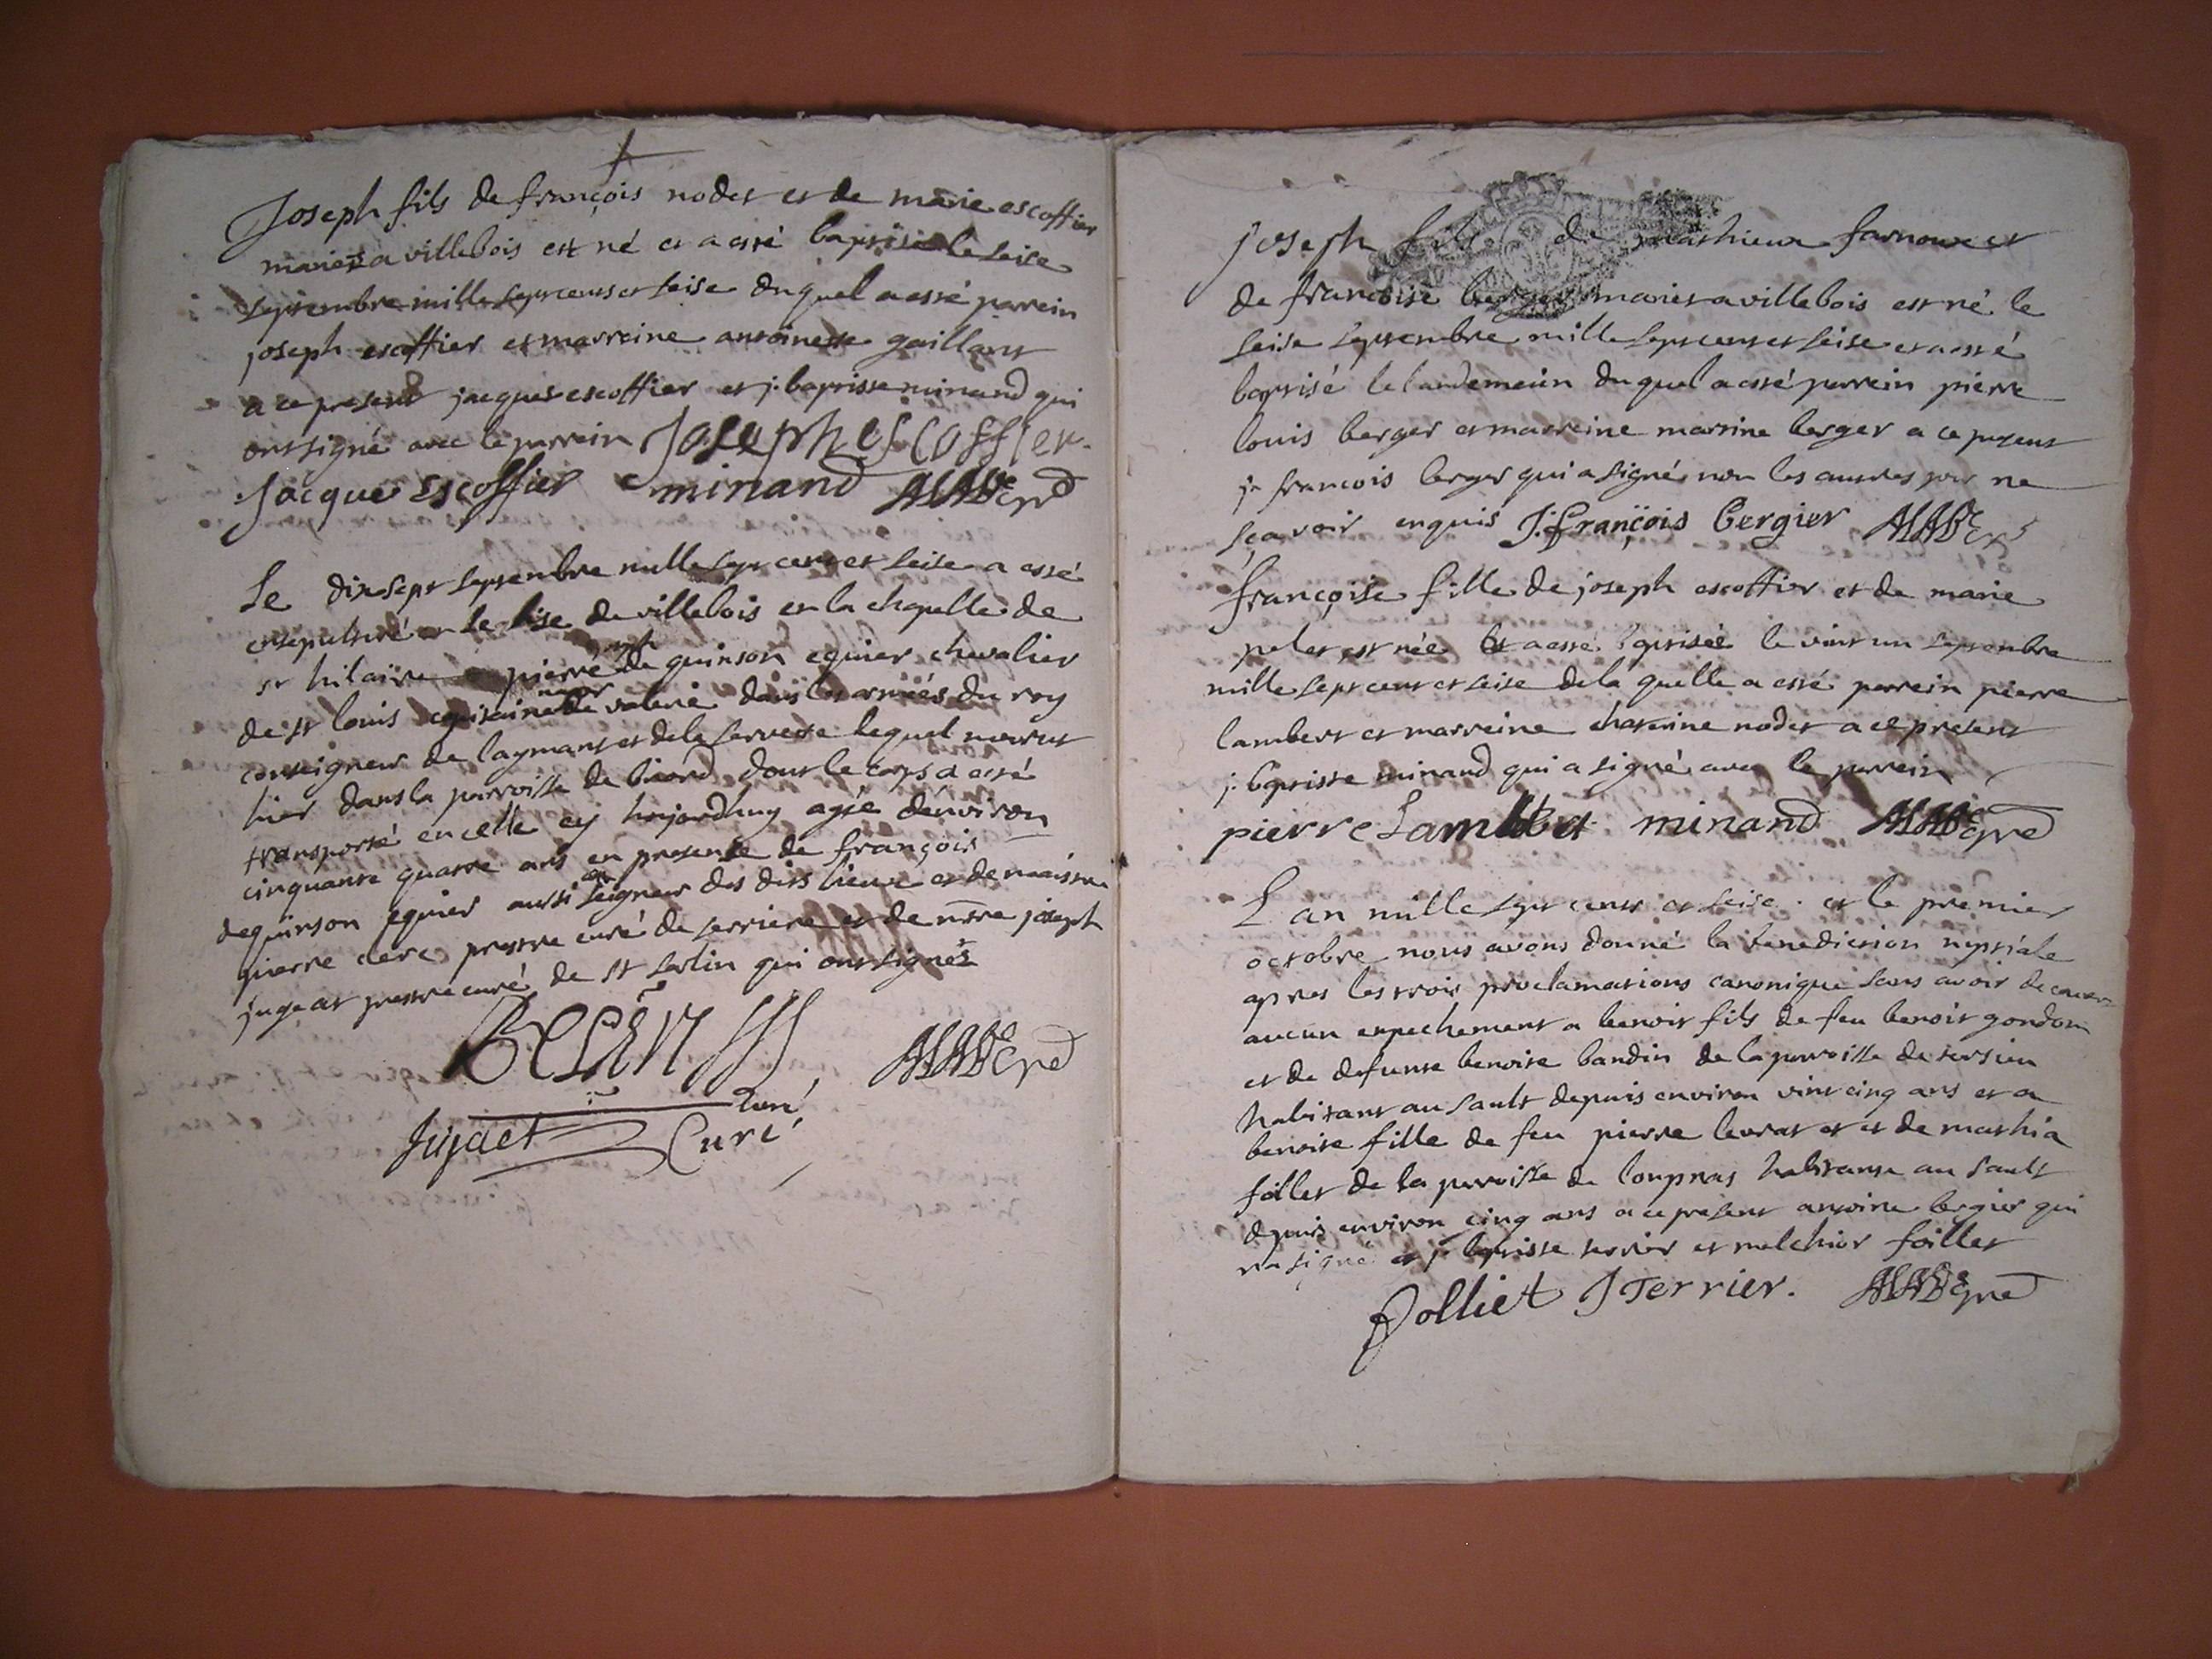 Joseph fils de françois nodet et de marie escoffier
mariés a villebois est né et a esté baptisé le seise
septembre mille sept cent et seise duquel a esté parrein
joseph escoffier et marreine antoinette gaillard
a ce present jacques escoffier et j. baptisse minand qui
ont signé avec le parrein Joseph escoffier
Jacque Escoffier minand
Le dix sept septembre mille sept cent et seise a esté
ensepulturé de villebois en la chapelle de
st hilaire pierre de quinson equier chevalier
de st louis de valerie dans les armées du roy
conseigneur de laymant et de la servette lequel mourut
hier dans la parroisse de biord dont le corps a esté
transporté en celle cy aujourdhuy agée denviron
cinquante quatre ans en presence de françois
de quinson equier aussi seigneur des dits lieux et de
pierre clerc prestre curé de serriere et de joseph
jugeat prestre curé de st sorlin qui ont signés
Curé
Jujaet Curé
joseph fils de mathieux farnoux et
de francoise berger mariés a villebois est né le
seise septembre mille sept cent et seise et a esté
baptisé le landemein duquel a esté parrein pierre
louis berger et marreine berger a ce present
j. francois berger qui a signé non les autres pour ne
sçavoir enquis J. françois bergier
françoise fille de joseph escoffier et de marie
pelet est née et a esté baptisée le vint un septembre
mille sept cent et seise de la quelle a esté parrein pierre
lambert et marreine chaterine nodet a ce present
j. baptisse minand qui a signé avec le parrein
pierre Lambert minand
L an mille sept cent et seise et le premier
octobre nous avons donné la benediction nuptiale
apres les trois proclamations canonique sans avoir decouvert
aucun enpechement a benoit fils de feu benoit gondom
et de defunte benoite baudin de la parroisse de
habitant au sault depuis environ vint cinq ans et a
benoite fille de feu pierre levrat et et de mathia
foillet de la parroisse de loupnas habitante au sault
depuis environ cinq ans a ce present antoine bergier qui
na signé et j. baptisse terrier et melchior foillet
folliet J Terrier.